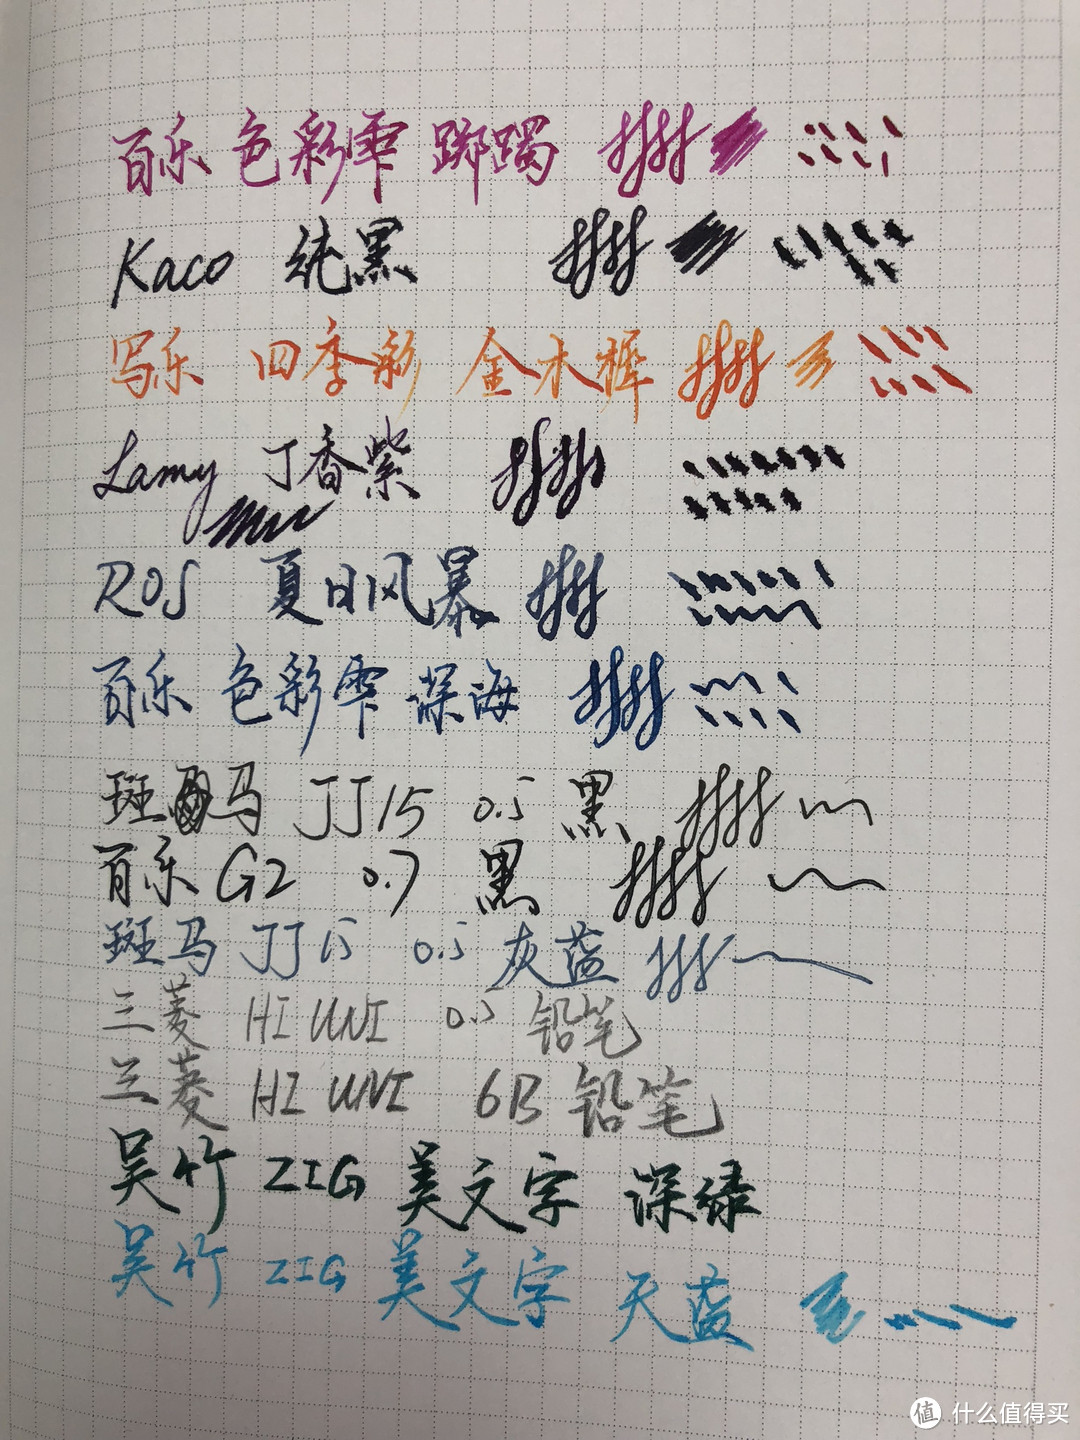 百乐 色彩雫 踯躅
Kaco 纯黑
写乐 四季彩 金木樨
Lamy 丁香紫
ROS 夏日风暴
百乐 色彩雫 深海
斑马 JJ15 0.5 黑
百乐 G2 0.7 黑
斑马 JJ15 0.5 灰蓝
三菱 HI UNI 0.5 铅笔
三菱 HI UNI 6B 铅笔
吴竹 ZIG 美文字 深绿
吴竹 ZIG 美文字 天蓝
值 什么值得买